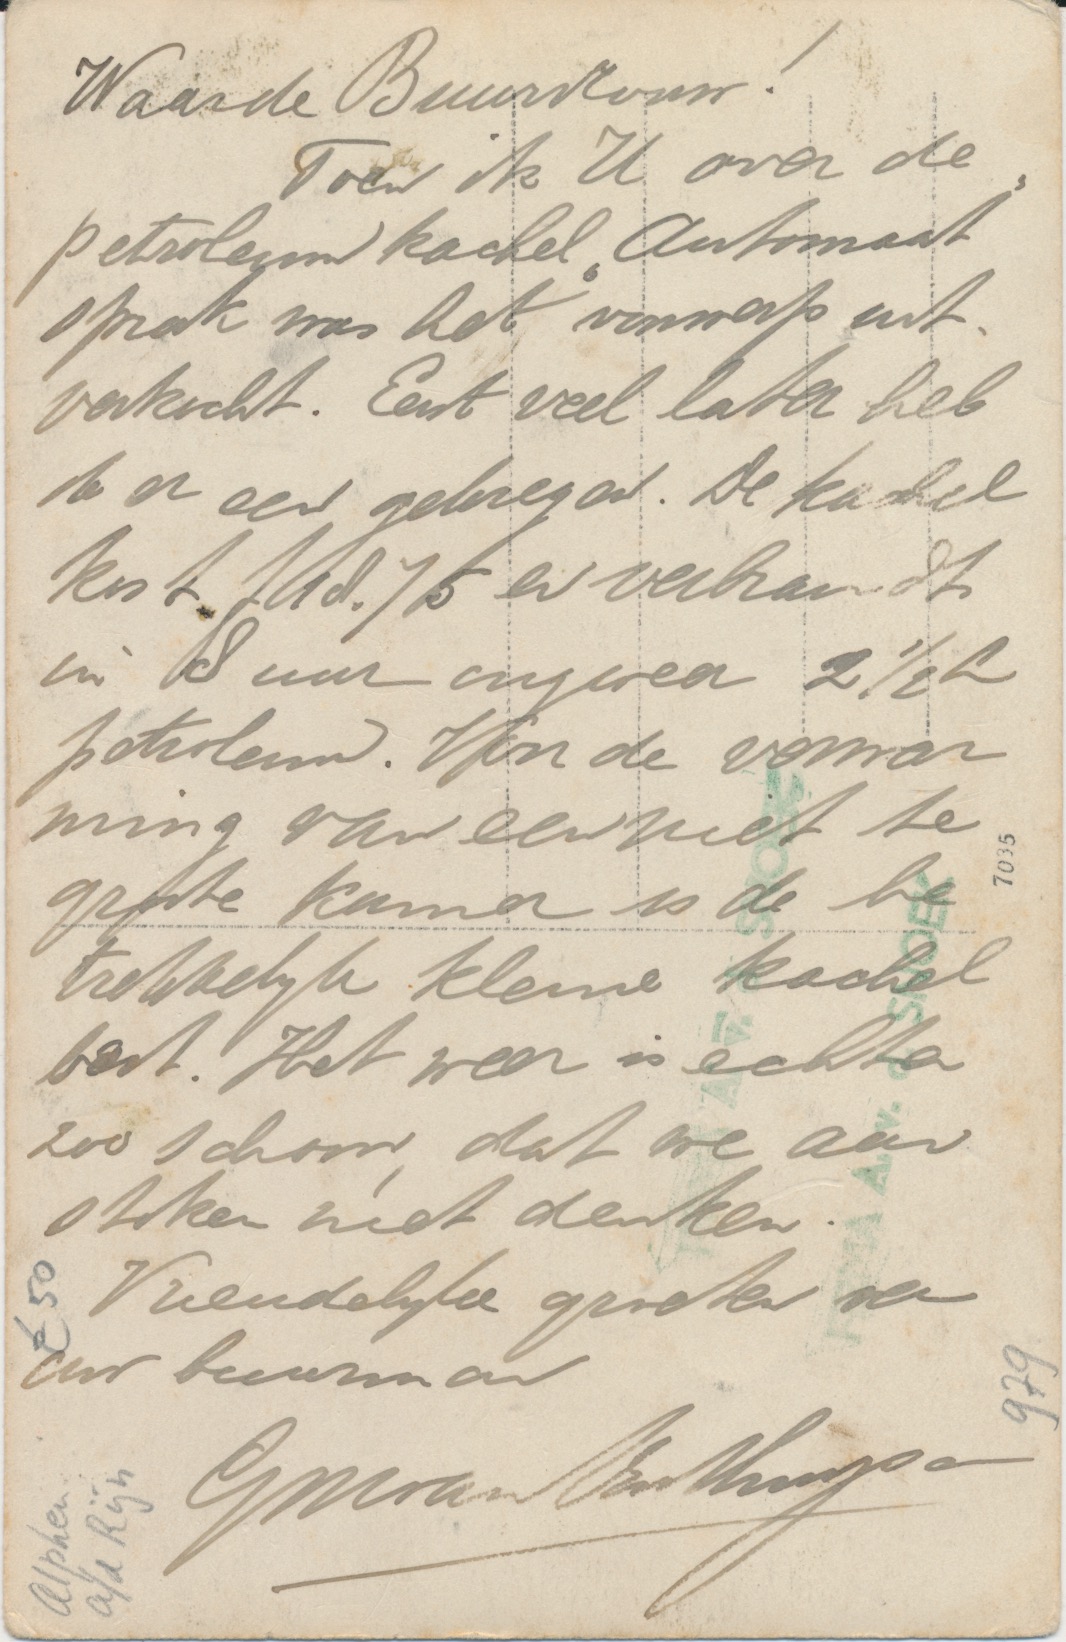 Waarde Buurvrouw!
Toen ik U over de
petroleum kachel „Automaat"
sprak was het voorwerp uit-
verkocht. Eerst veel later heb
ik er een gekregen. De kachel
kost f 18.75 en verbrandt
in 8 uur ongeveer 2 1/2 L
petroleum. Voor de verwar
ming van een niet te
groote kamer is de be
trekkelijk kleine kachel
best. Het weer is echter
zoo schoon, dat we aan
stoken niet denken.
Vriendelijke groeten van
uw buurman
7035
979
€ 50
Alphen
a/d Rijn
FIRMA A. v. d. SNOEK
A. v. d. SNOEK